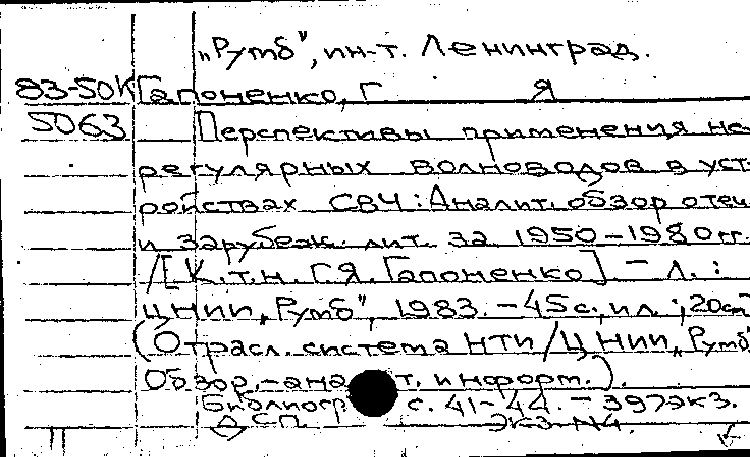 „Румб", ин-т. Ленинград.
83-50К Гапоненко, Г Я
5063 Перспективы применения не
регулярных волноводов в уст
ройствах СВЧ: Аналит. обзор отеч
и зарубеж. лит. за 1950-1980 гг.
/[К.т.н. Г.Я. Гапоненко] - Л.:
ЦНИИ „Румб", 1983. - 45 с., ил.; 20 см
(Отрасл. система НТИ/ЦНИИ „Румб"
Обзор.-ана т. информ.).
Библиогр с. 41-44. - 397 экз.
ДСП Экз N4.